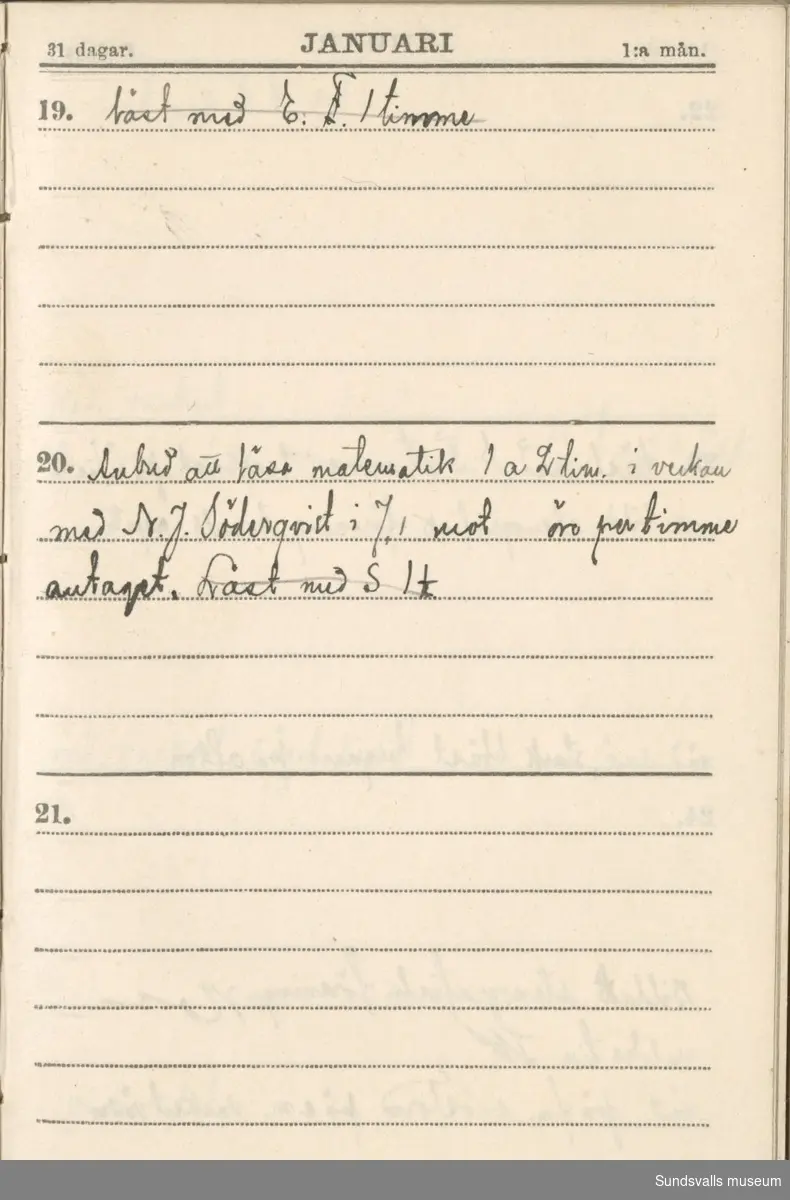 31 dagar. JANUARI 1:a mån.
19. läst med E. F. 1 timme
20. Anbud att läsa matematik 1 a 2 tim. i veckan
med N. J. Söderqvist i 7,1 mot öre per timme
antaget. Läst med S 1 t
21.
Sundsvalls museum